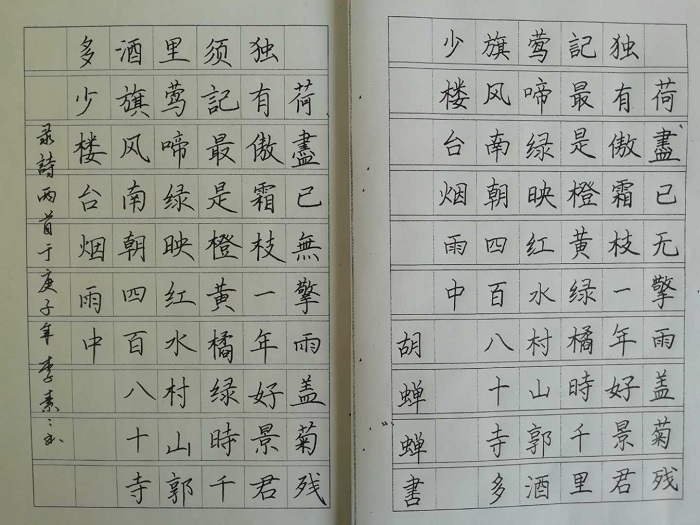 荷盡已无擎雨盖菊残
独有傲霜枝一年好景君
記最是橙黄绿橘時千里
莺啼绿映红水村山郭酒
旗风南朝四百八十寺多
少楼台烟雨中
胡蝉蝉書
荷盡已無擎雨盖菊残
独有傲霜枝一年好景君
须記最是橙黄橘绿時千
里莺啼绿映红水村山郭
酒旗风南朝四百八十寺
多少楼台烟雨中
录詩两首于庚子年李素〻书